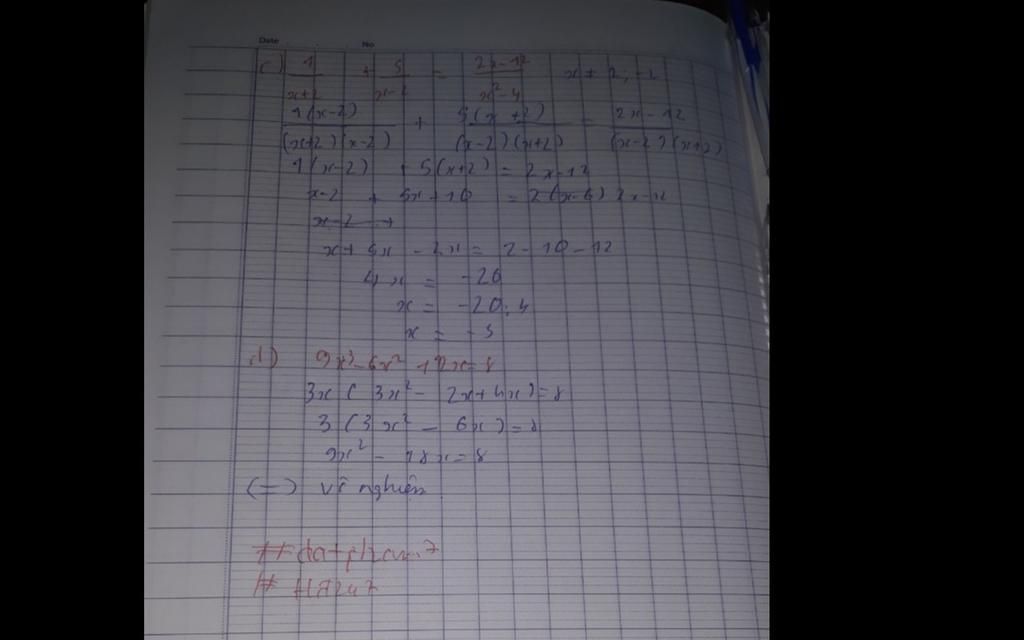 Date No
c) 1/(x+2) + 5/(x-2) = (2x-12)/(x²-4) x ≠ 2, -2
1(x-2)/((x+2)(x-2)) + 5(x+2)/((x-2)(x+2)) = (2x-12)/((x-2)(x+2))
1(x-2) + 5(x+2) = 2x-12
x-2 + 5x+10 = 2(x-6) 2x-12
x-2 +
x+5x-2x = 2-10-12
4x = -20
x = -20:4
x = -5
d) 9x³-6x²+12x=8
3x(3x²-2x+4x)=8
3(3x²-6x)=8
9x²-18x=8
(=) vô nghiệm